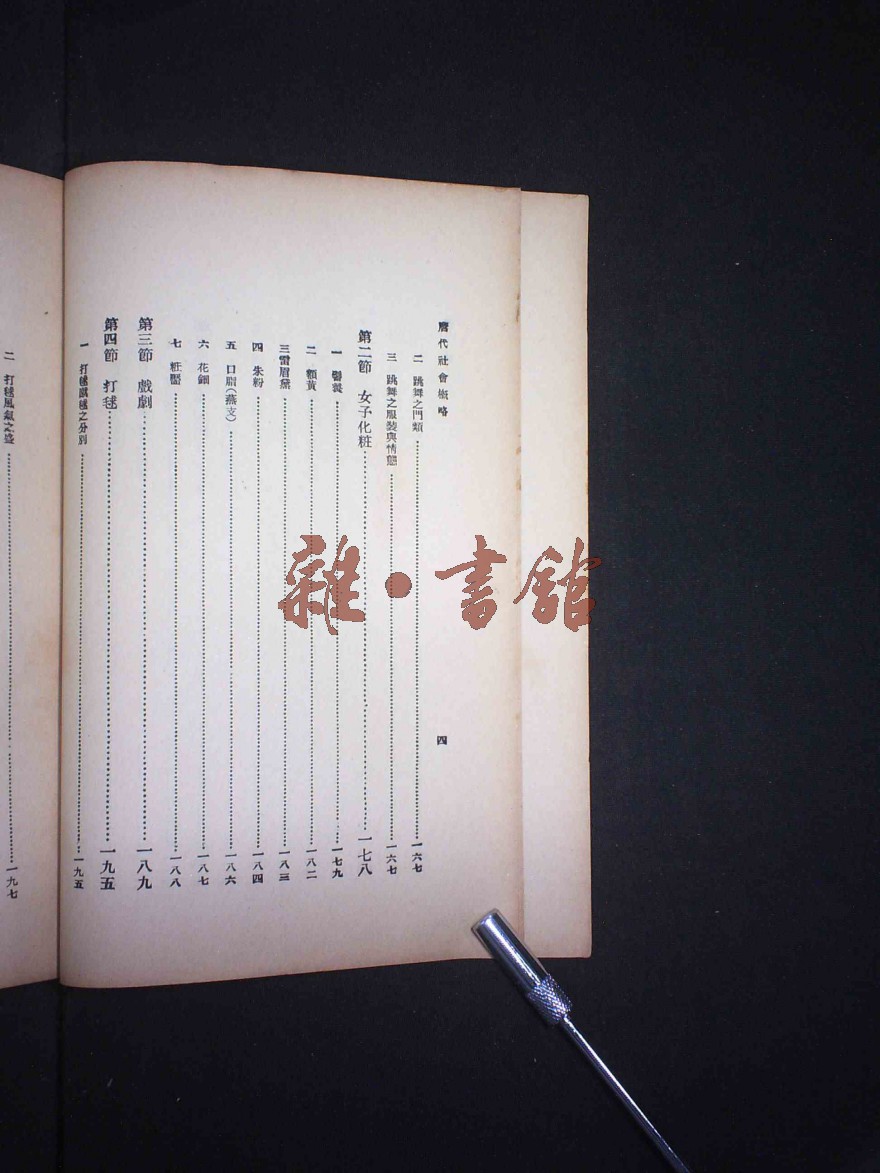 唐代社會槪略
四
二 跳舞之門類 一六七
三 跳舞之服裝與情態 一六七
第二節 女子化粧 一七八
一 髻鬟 一七九
二 額黃 一八二
三雷眉黛 一八三
四 朱粉 一八四
五 口脂(燕支) 一八六
六 花鈿 一八七
七 粧靨 一八八
第三節 戲劇 一八九
第四節 打毬 一九五
一 打毬戲毬之分別 一九五
二 打毬風氣之盛 一九七
雜·書館